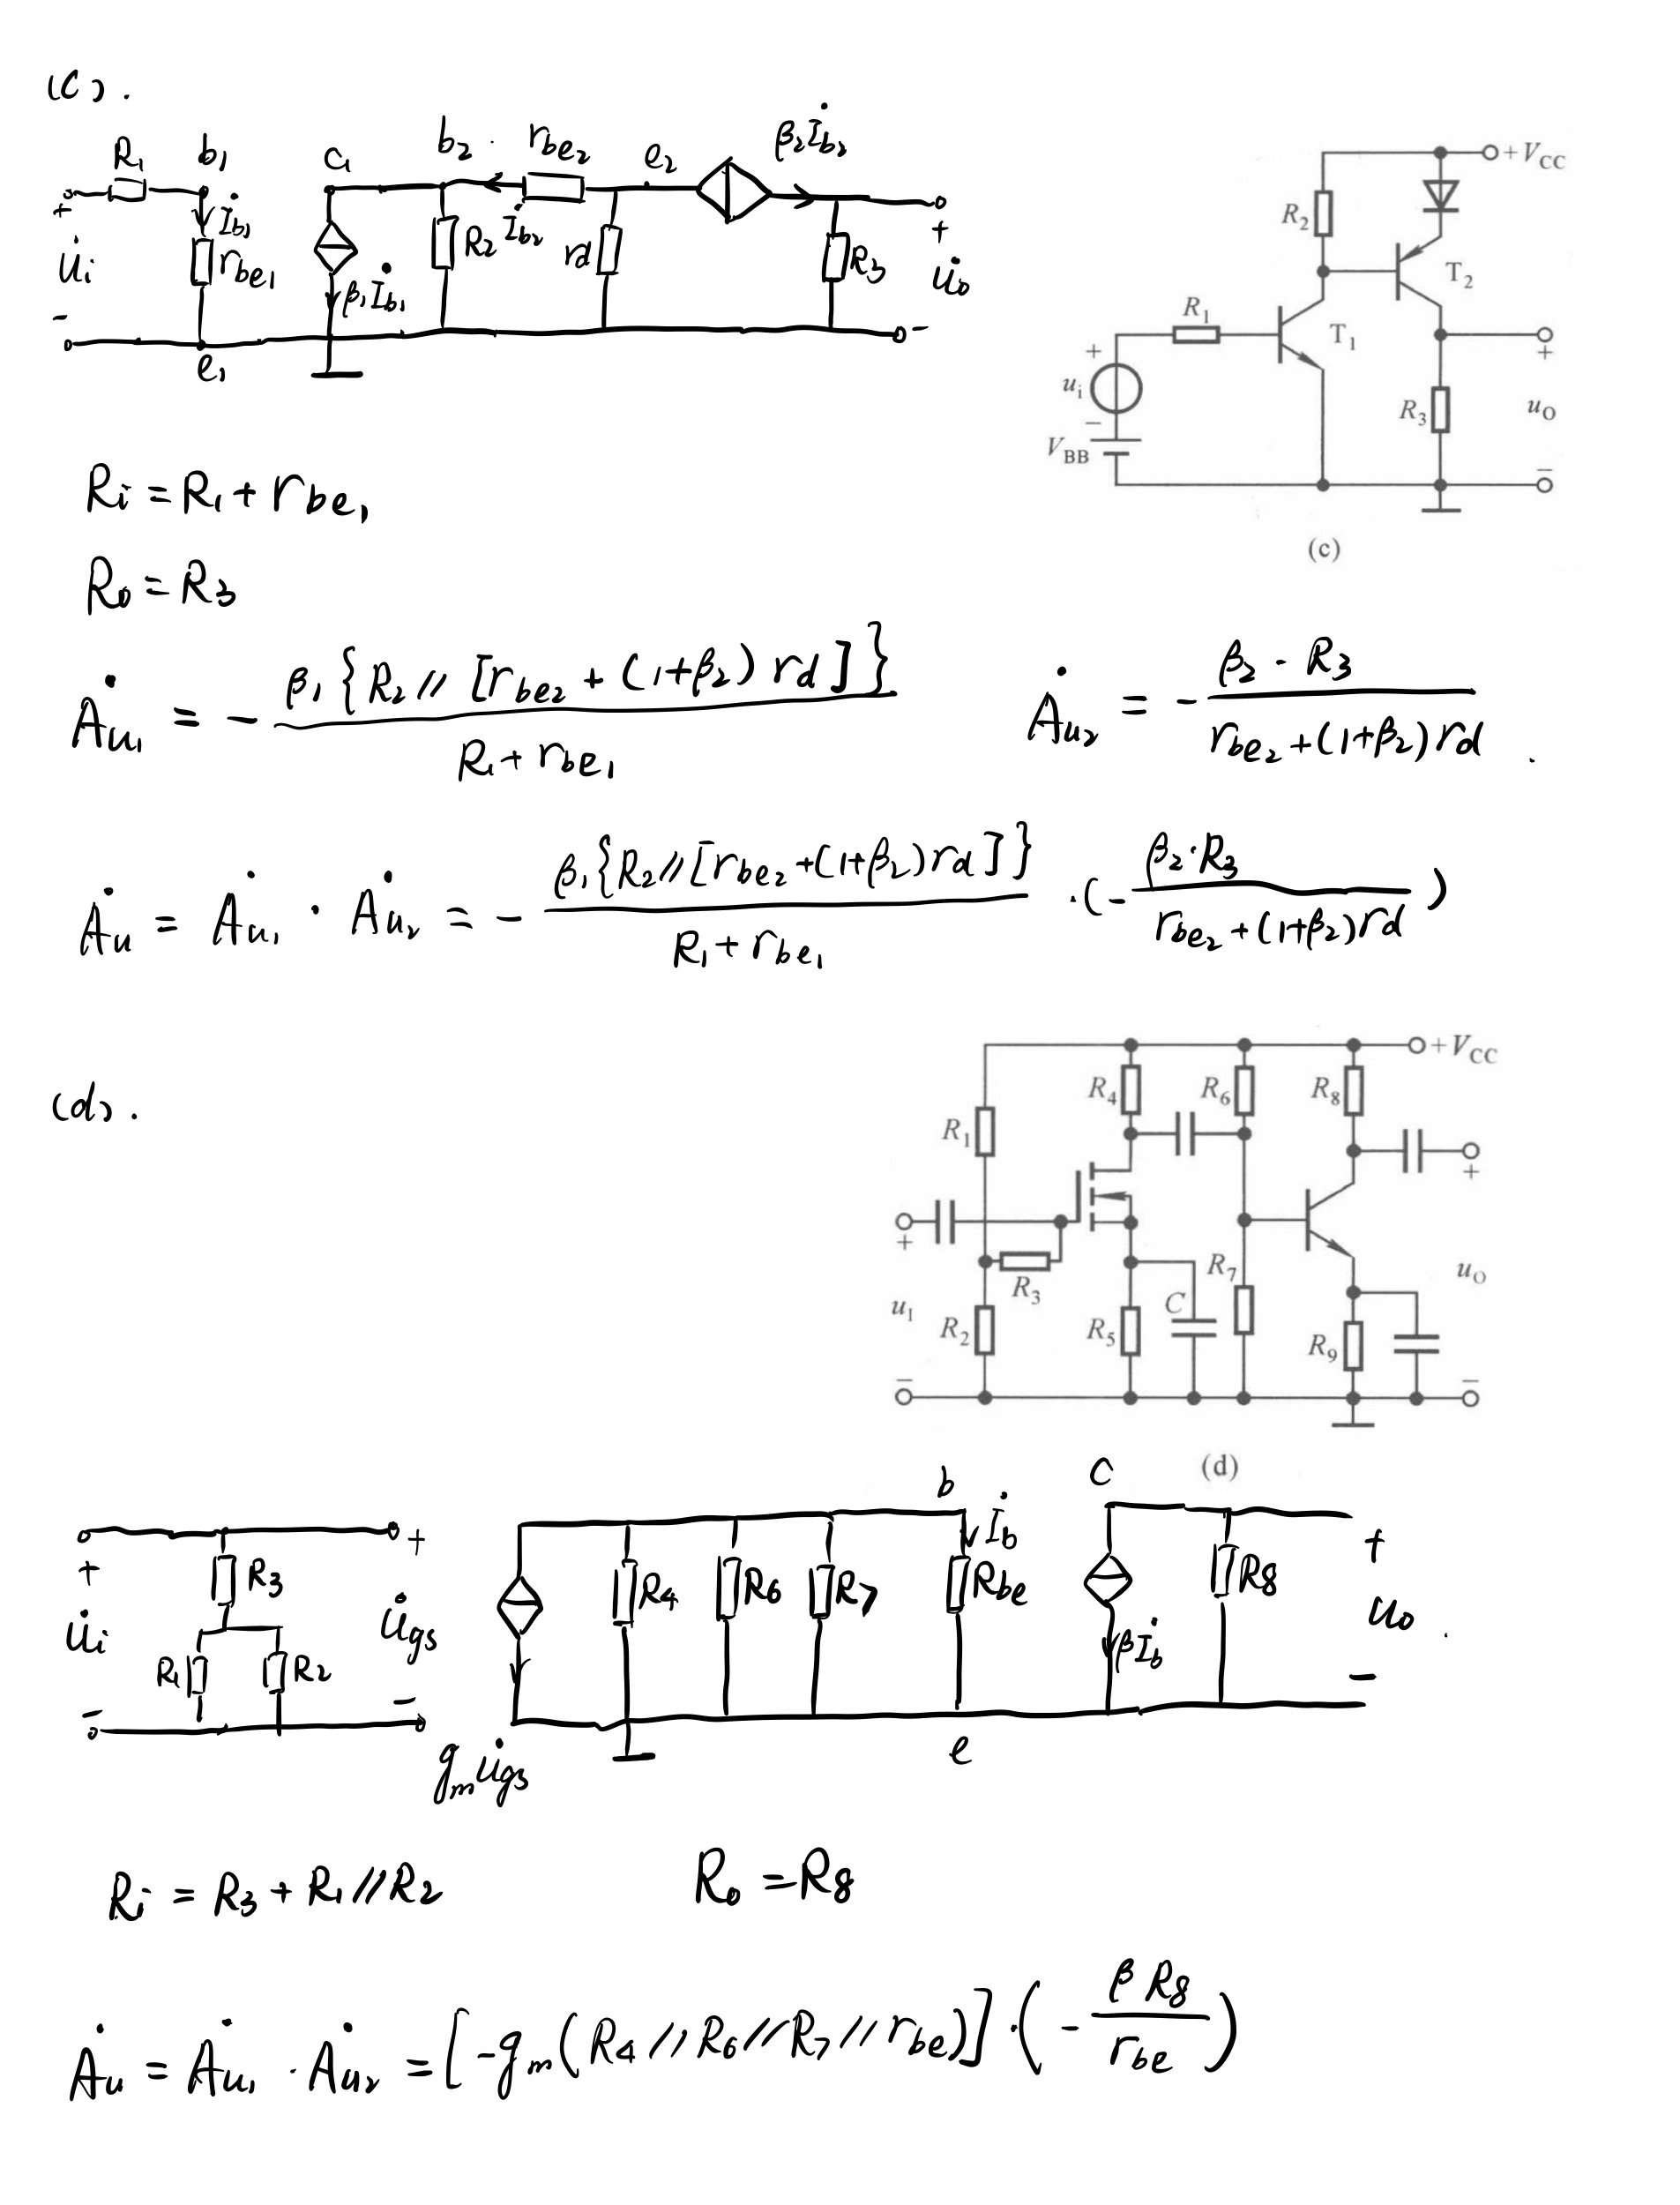 (C).
R₁ b₁ c₁ b₂ r_be₂ e₂ β₂İ_b₂
+ u̇ᵢ - İ_b₁ r_be₁ β₁İ_b₁ R₂ İ_b₂ rd R₃ + u̇₀ -
e₁
+V_CC
R₂
T₂
R₁
T₁
+ uᵢ −
R₃
+ u_O −
V_BB
(c)
Rᵢ = R₁ + r_be₁
R₀ = R₃
Ȧu₁ = - β₁{R₂ // [r_be₂ + (1+β₂) rd]} / (R₁ + r_be₁)
Ȧu₂ = - β₂ · R₃ / (r_be₂ + (1+β₂) rd) .
Ȧu = Ȧu₁ · Ȧu₂ = - β₁{R₂ // [r_be₂ + (1+β₂) rd]} / (R₁ + r_be₁) · (- β₂·R₃ / (r_be₂ + (1+β₂) rd))
(d).
+V_CC
R₄ R₆ R₈
R₁
+
+
R₃
R₇
u_I R₂ R₅ C R₉ u_O
− −
(d)
b c
+ u̇ᵢ - R₃ R₁ R₂ + u̇gs - R₄ R₆ R₇ İ_b R_be βİ_b R₈ + u̇₀ -
gₘu̇gs e
Rᵢ = R₃ + R₁ // R₂
R₀ = R₈
Ȧu = Ȧu₁ · Ȧu₂ = [-gₘ(R₄ // R₆ // R₇ // r_be)] · (- βR₈ / r_be)